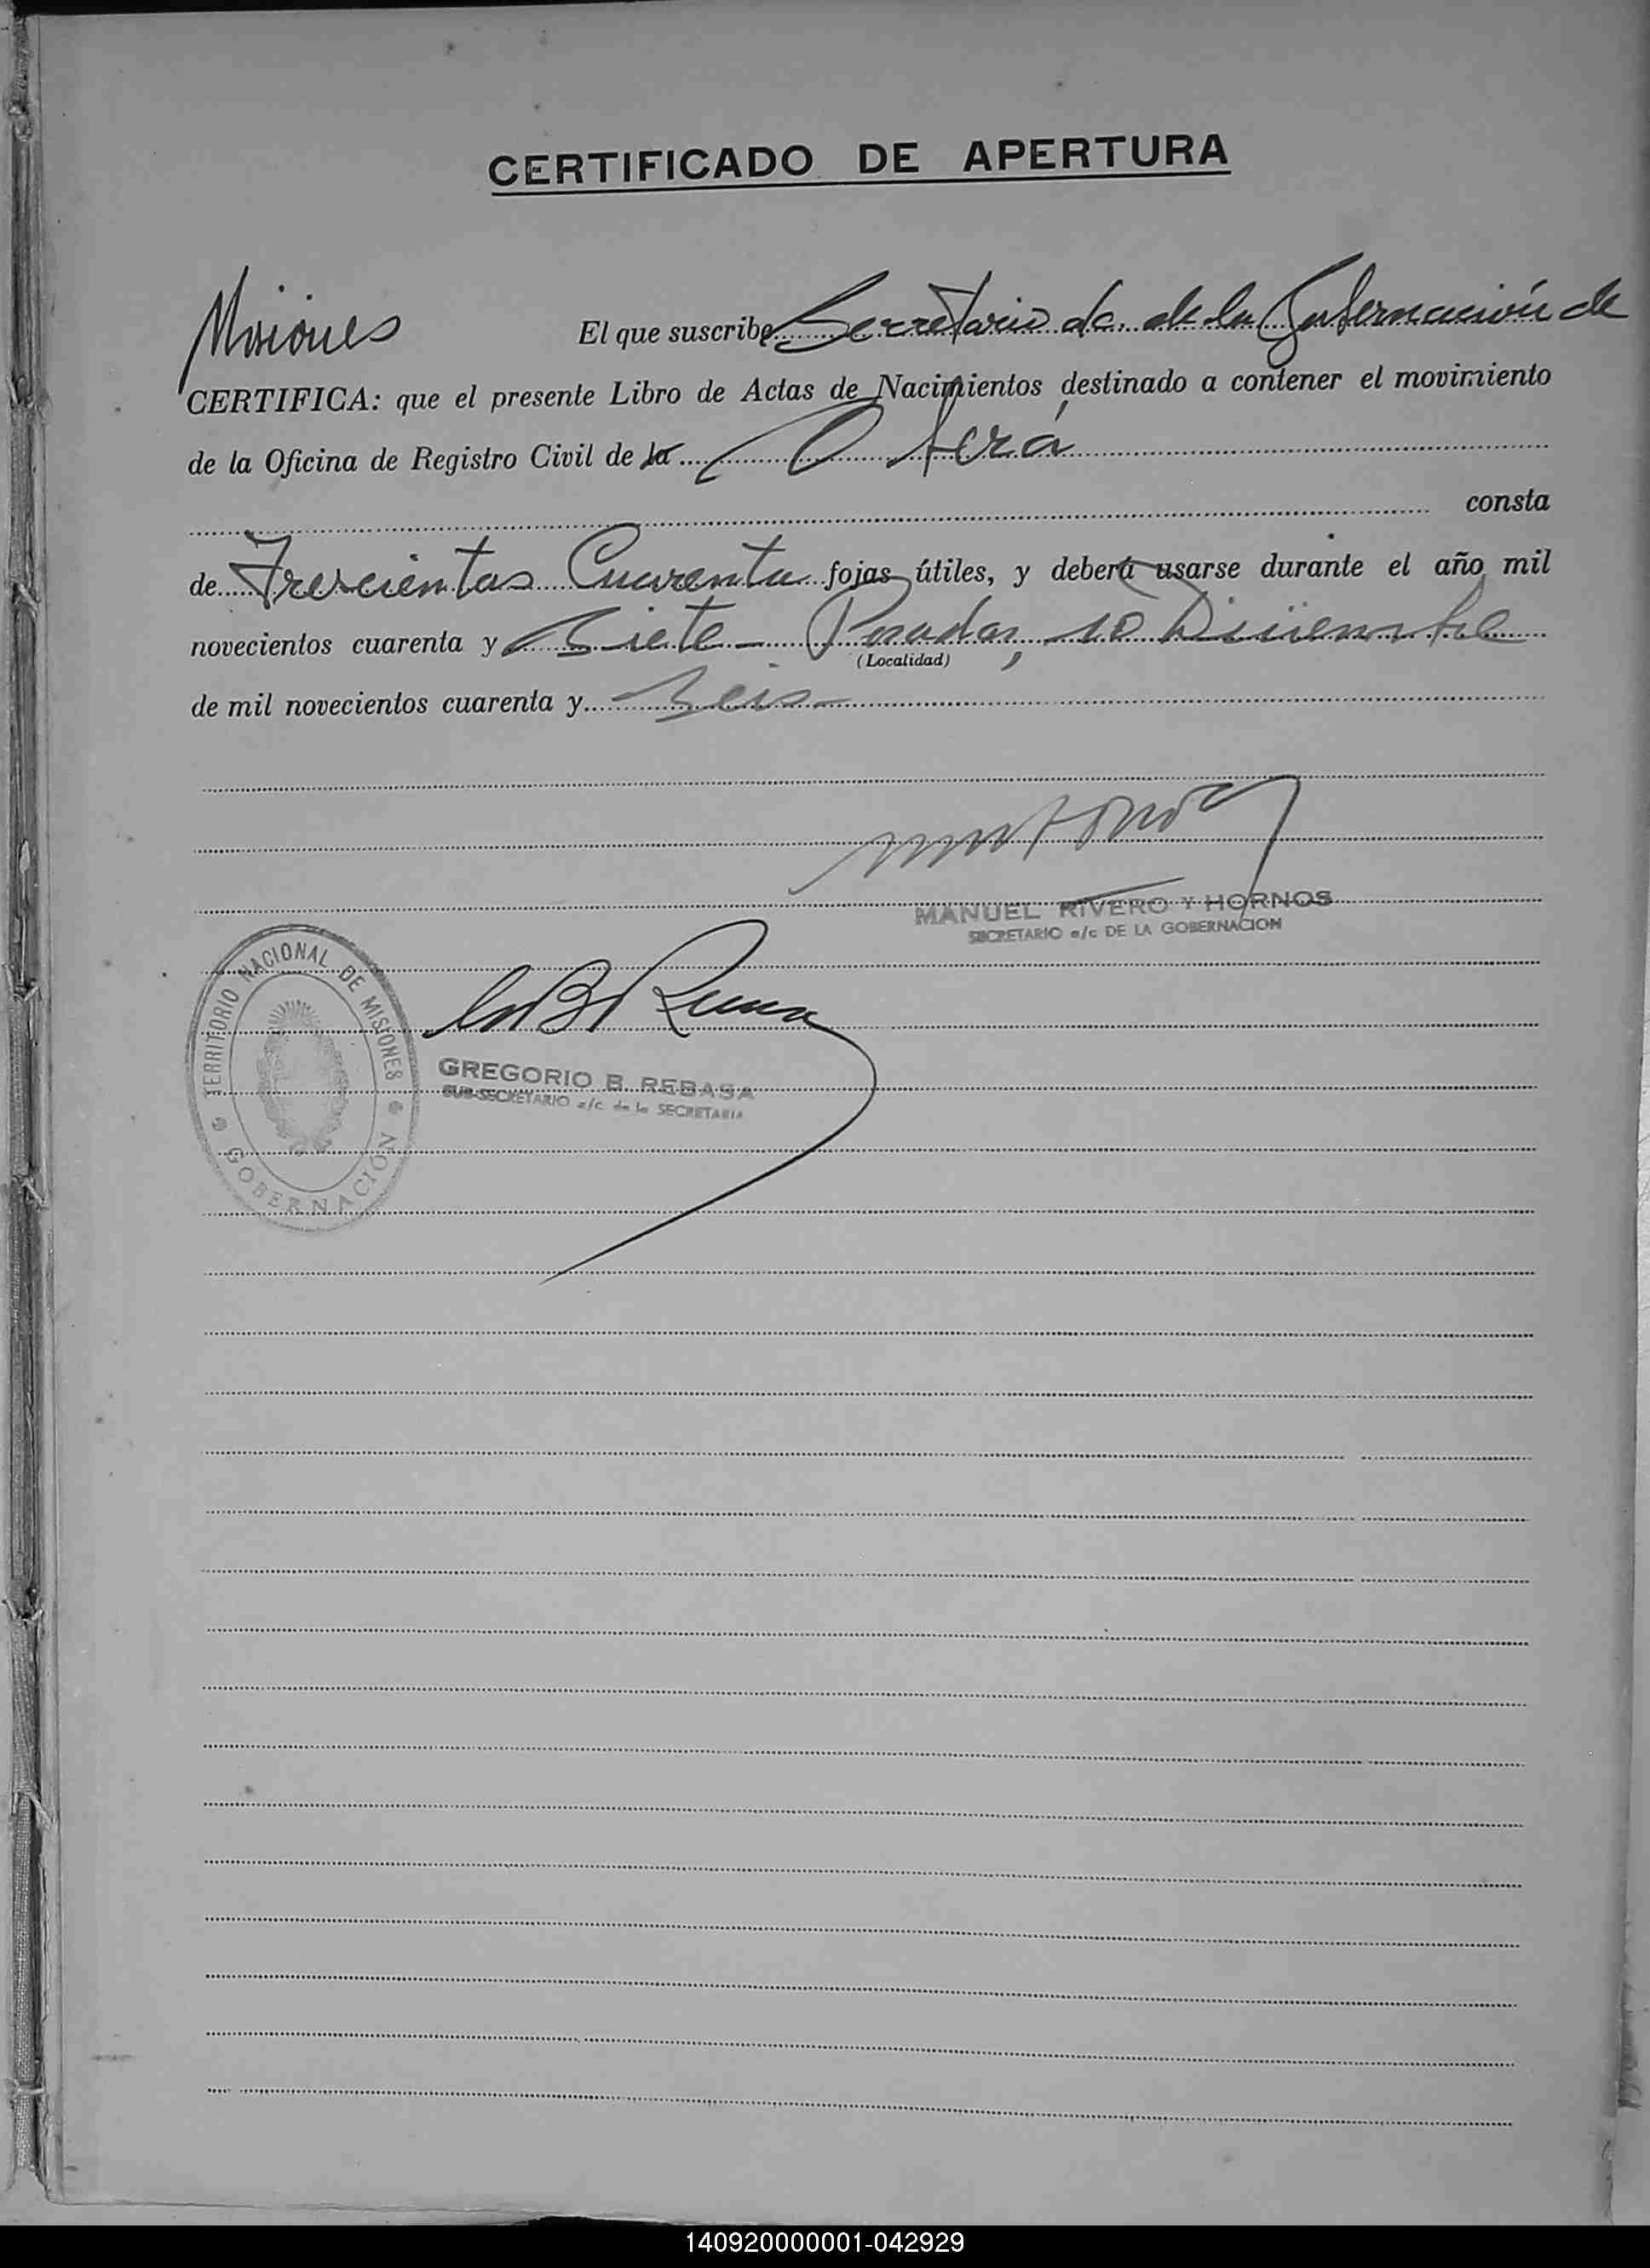 CERTIFICADO DE APERTURA
El que suscribe Secretario a/c. de la Gobernación de
Misiones
CERTIFICA: que el presente Libro de Actas de Nacimientos destinado a contener el movimiento
de la Oficina de Registro Civil de la Oberá
consta
de Trescientas Cuarenta fojas útiles, y deberá usarse durante el año mil
novecientos cuarenta y Siete - Posadas, 10 Diciembre
(Localidad)
de mil novecientos cuarenta y Seis -
MANUEL RIVERO Y HORNOS
SECRETARIO a/c DE LA GOBERNACION
TERRITORIO NACIONAL DE MISIONES
GOBERNACION
GREGORIO B. REBASA
SUB-SECRETARIO a/c de la SECRETARIA
140920000001-042929